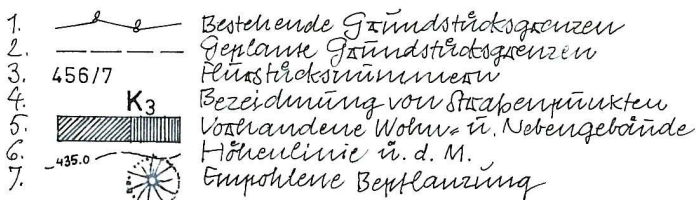 1. Bestehende Grundstücksgrenzen
2. Geplante Grundstücksgrenzen
3. 456/7 Flurstücksnummern
4. K3 Bezeichnung von Straßenpunkten
5. Vorhandene Wohn= u. Nebengebäude
6. 435.0 Höhenlinie ü. d. M.
7. Empfohlene Bepflanzung